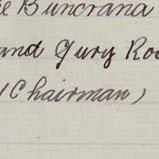 e Buncrana
and Jury Roo
(Chairman)